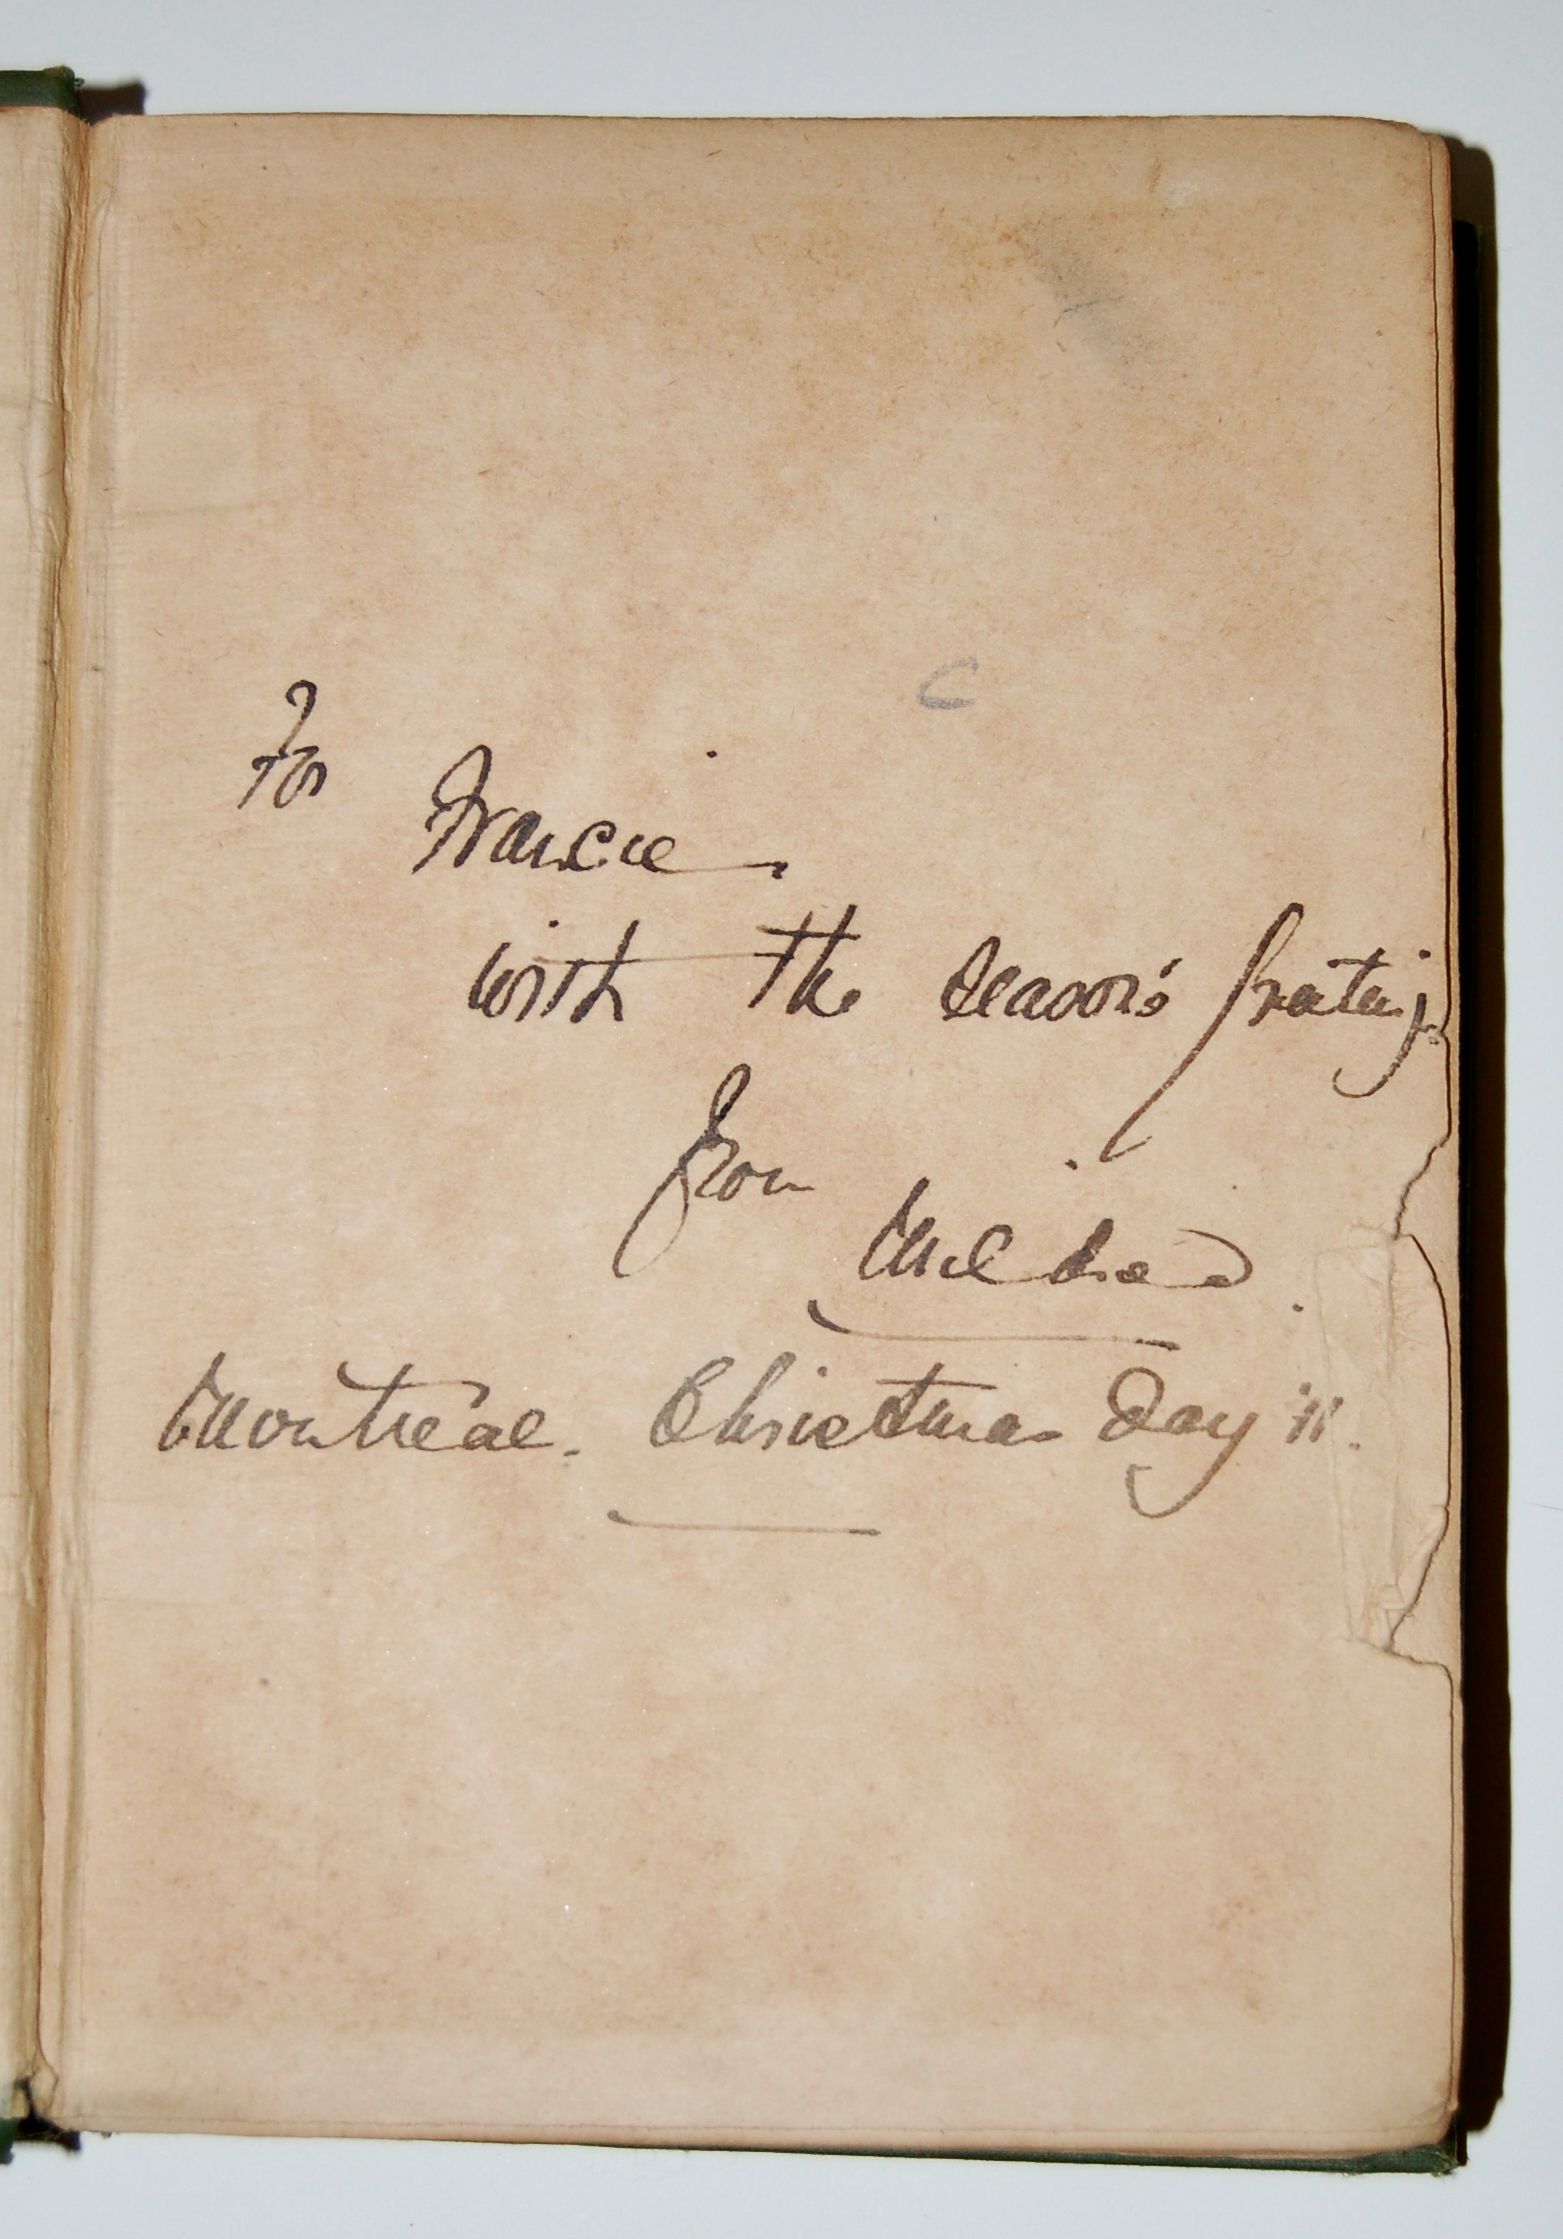 To
Francie
with the season's greetings
from
Mildred.
Montreal. Christmas Day '11.